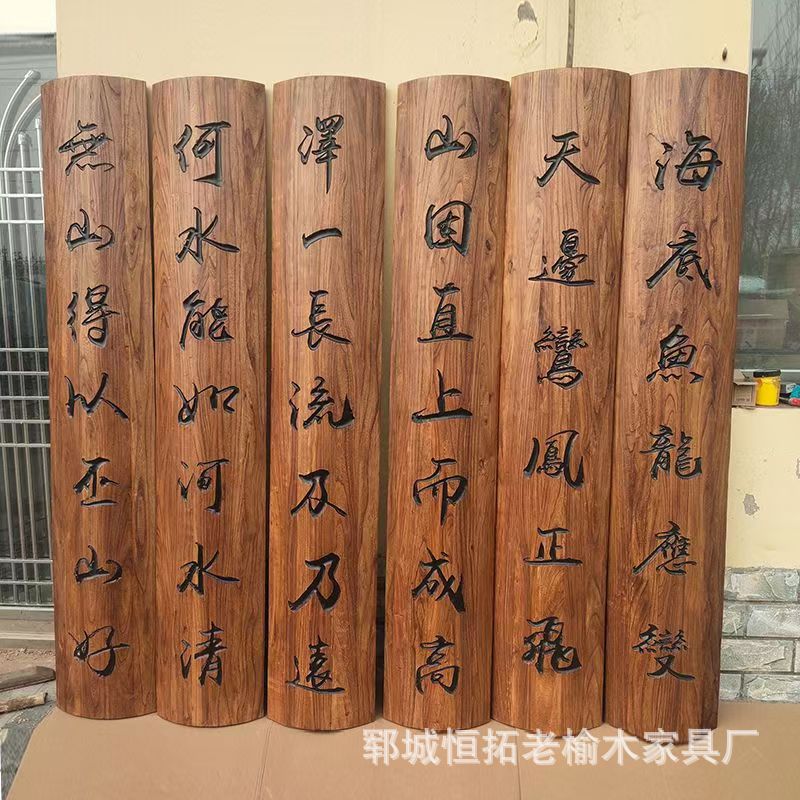 海底魚龍應變
天邊鸞鳳正飛
山因直上而成高
澤一長流及乃遠
何水能如河水清
無山得以丕山好
郓城恒拓老榆木家具厂